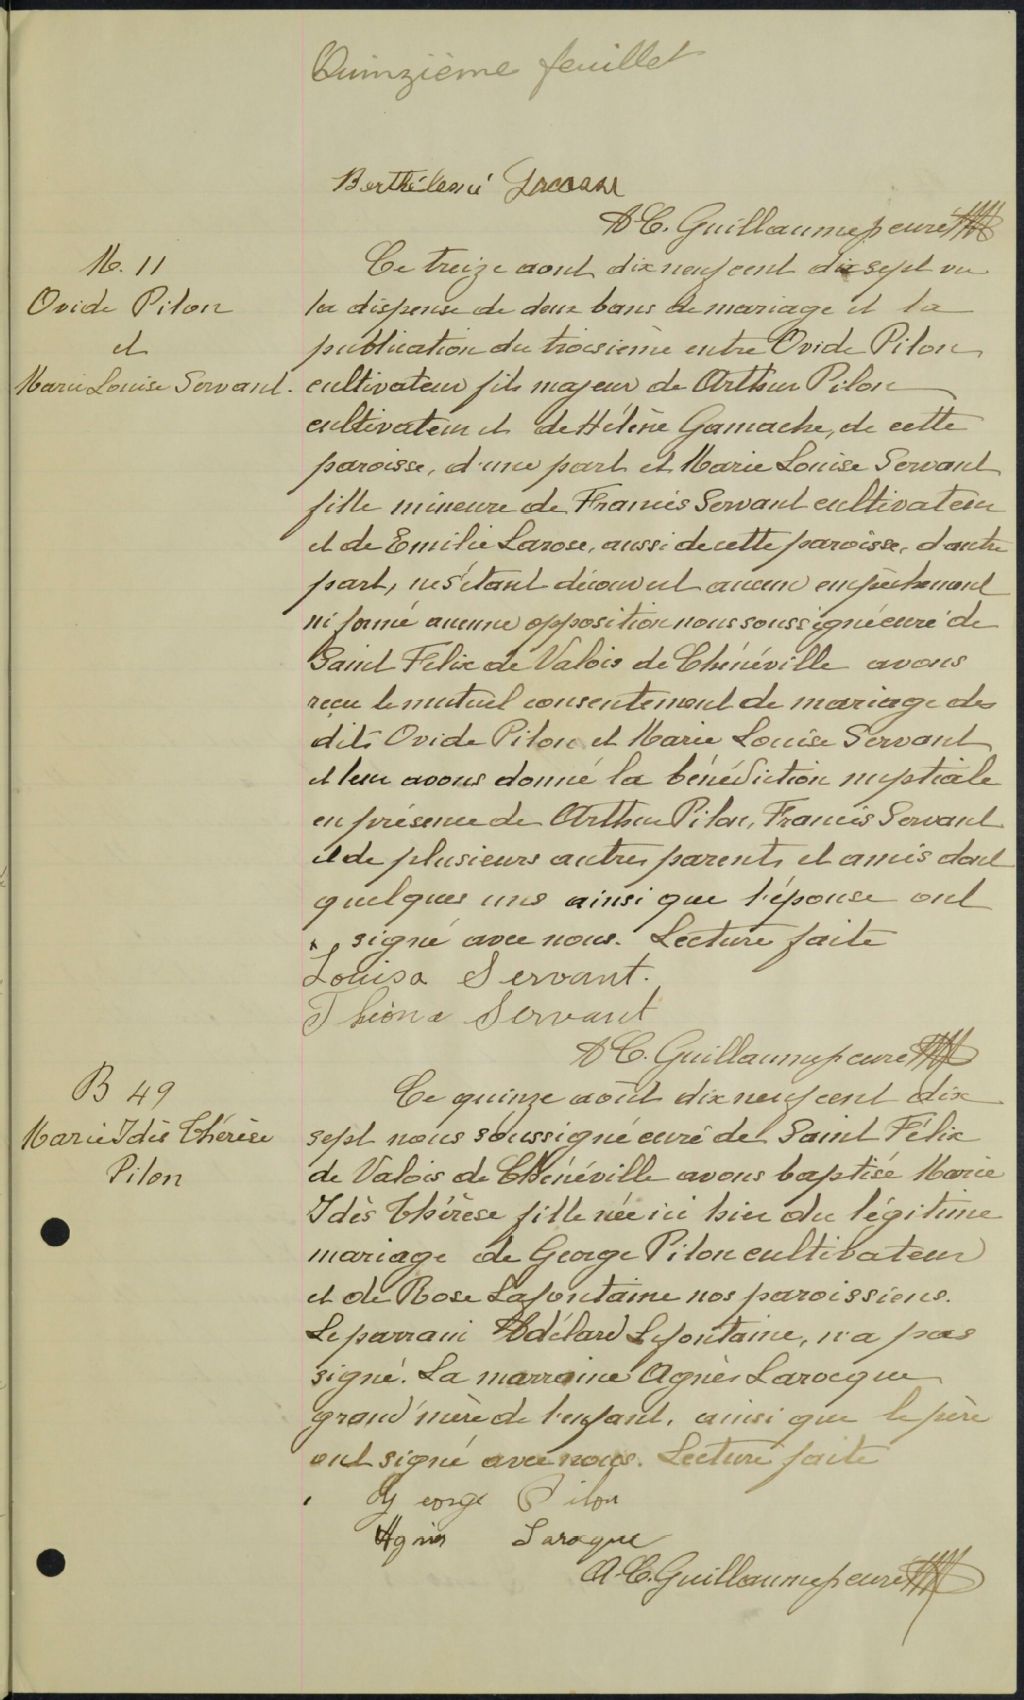 Quinzième feuillet
Berthélemi
A C. Guillaume p curé
M. 11
Ovide Pilon
et
Marie Louise Servant.
Ce treize aout dix neuf cent dix sept vu
la dispense de deux bans de mariage et la
publication du troisième entre Ovide Pilon
cultivateur fils majeur de Arthur Pilon
cultivateur et de Hélène Gamache, de cette
paroisse, d'une part et Marie Louise Servant
fille mineure de Francis Servant cultivateur
et de Emilie Larose, aussi de cette paroisse, d'autre
part, ne s'étant découvert aucun empêchement
ni formé aucune opposition nous soussigné curé de
Saint Felix de Valois de Chénéville avons
reçu le mutuel consentement de mariage des
dits Ovide Pilon et Marie Louise Servant
et leur avons donné la bénédiction nuptiale
en présence de Arthur Pilon, Francis Servant
et de plusieurs autres parents et amis dont
quelques uns ainsi que l'épouse ont
signé avec nous. Lecture faite
Louisa Servant.
Servant
A C. Guillaume p curé
B 49
Marie Idès Thérèse
Pilon
Ce quinze août dix neuf cent dix
sept nous soussigné curé de Saint Félix
de Valois de Chénéville avons baptisé Marie
Idès Thérèse fille née ici hier du légitime
mariage de George Pilon cultivateur
et de Rose Lafontaine nos paroissiens.
Le parrain Adélard Lafontaine, n'a pas
signé. La marraine Agnès Larocque
grand'mère de l'enfant, ainsi que le père
ont signé avec nous. Lecture faite
George Pilon
Agnes Laroque
A. C. Guillaume p curé